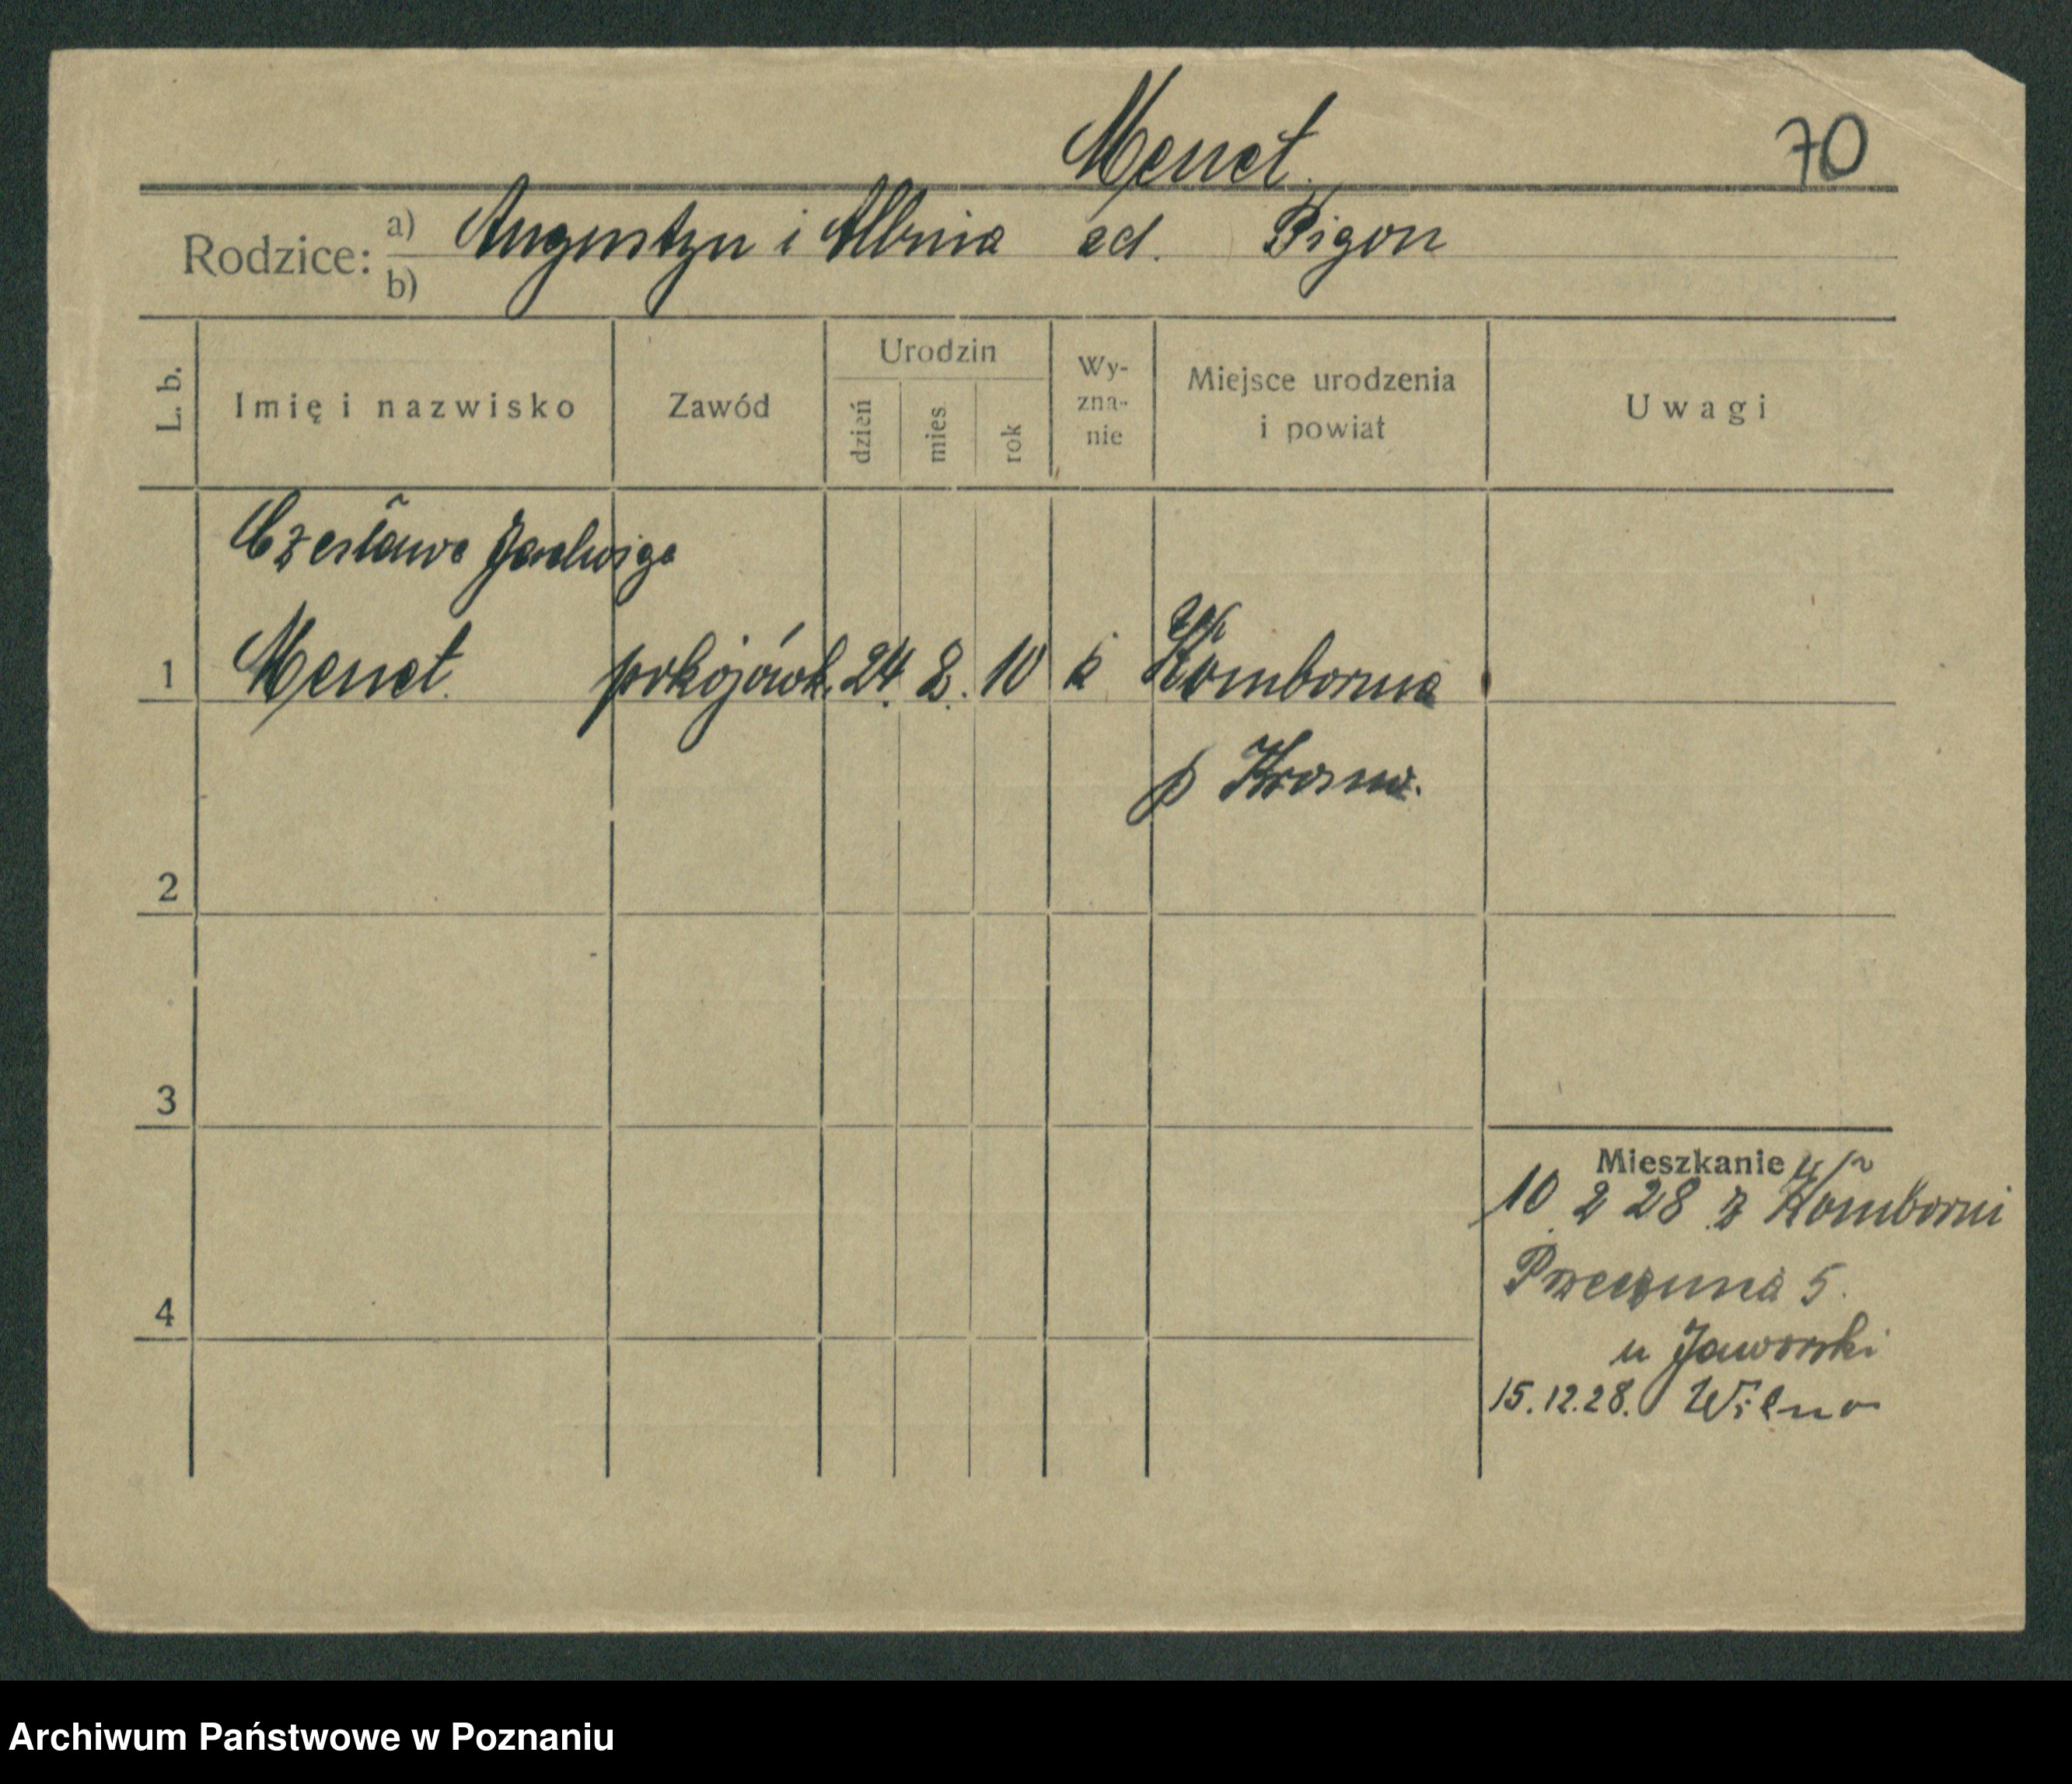 Menet.
70
Rodzice: a) Augustyn i Albina zd. Pigon
b)
L. b.
Imię i nazwisko
Zawód
Urodzin
dzień
mies
rok
Wy-
zna-
nie
Miejsce urodzenia
i powiat
Uwagi
Czesława Jadwiga
1 Menet. pokojówk. 24. 2. 10 k Kombornia
p Krosno.
2
3
4
Mieszkanie
10 2 28 z Komborni
Przeczna 5.
u Jaworski
15.12.28. Wilno
Archiwum Państwowe w Poznaniu